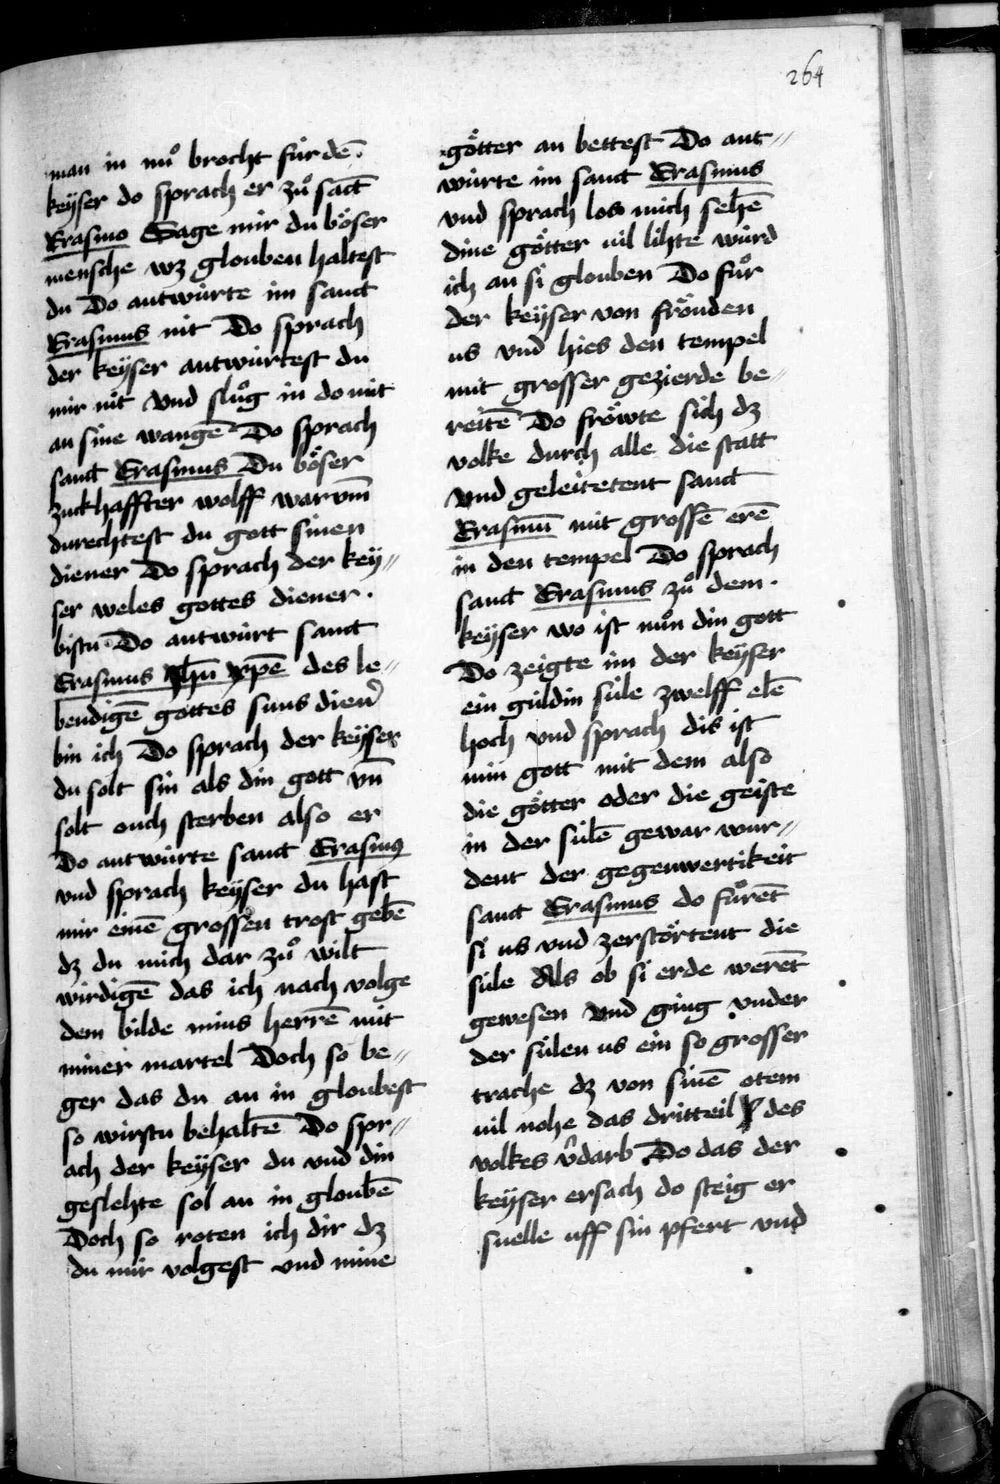 264
man in nuͦ brocht fúr dē
keyser do sprach er zuͦ sāct
Erasmo Sage mir du boͤser
mensche wz glouben haltest
du Do antwúrte im sanct
Erasmus nit Do sprach
der keyser antwúrtest du
mir nit Vnd sluͦg in do mit
an sine wangē Do sprach
sanct Erasmus Du boͤser
zuckhaffter wolff warvm̄
durechtest du gott sinen
diener Do sprach der key//
ser weles gottes diener.
bistu Do antwúrt sanct
Erasmus Jhū xp̄ē des le//
bendigē gottes suns dien᷑
bin ich Do sprach der keyser
du solt sin als din gott vn̄
solt ouch sterben also er
Do antwúrte sanct Erasmꝰ
vnd sprach keyser du hast
mir einē grossen trost gebē
dz du mich dar zuͦ wilt
wirdigē das ich nach volge
dem bilde mins herrē mit
miner martel Doch so be//
ger das du an in gloubest
so wirstu behaltē Do spr//
ach der keyser du vnd din
geslehte sol an in gloubē
Doch so roten ich dir dz
du mir volgest vnd mine
goͤtter an bettest Do ant//
wúrte im sanct Erasmus
vnd sprach los mich sehē
dine goͤtter vil lihte wúrd
ich an si glouben Do fuͦr
der keyser von froͤuden
us vnd hies den tempel
mit grosser gezierde be//
reitē Do froͤwte sich dz
volke durch alle die statt
Vnd geleitetent sanct
Erasmū mit grossē erē
in den tempel Do sprach
sanct Erasmus zuͦ dem
keyser wo ist nuͦn din gott
Do zeigte im der keyser
ein guldin sule zwelff elē
hoch vnd sprach dis ist
min gott mit dem also
die goͤtter oder die geiste
in der sulē gewar wur//
dent der gegenwertikeit
sanct Erasmus do fuͦrēt
si us vnd zerstoͤrtent die
sule Als ob si erde werēt
gewesen Vnd ging vnder
der sulen us ein so grosser
trache dz von sinē otem
vil nohe das dritteil des
volkes v᷑darb Do das der
keyser ersach do steig er
snelle uff sin pfert vnd